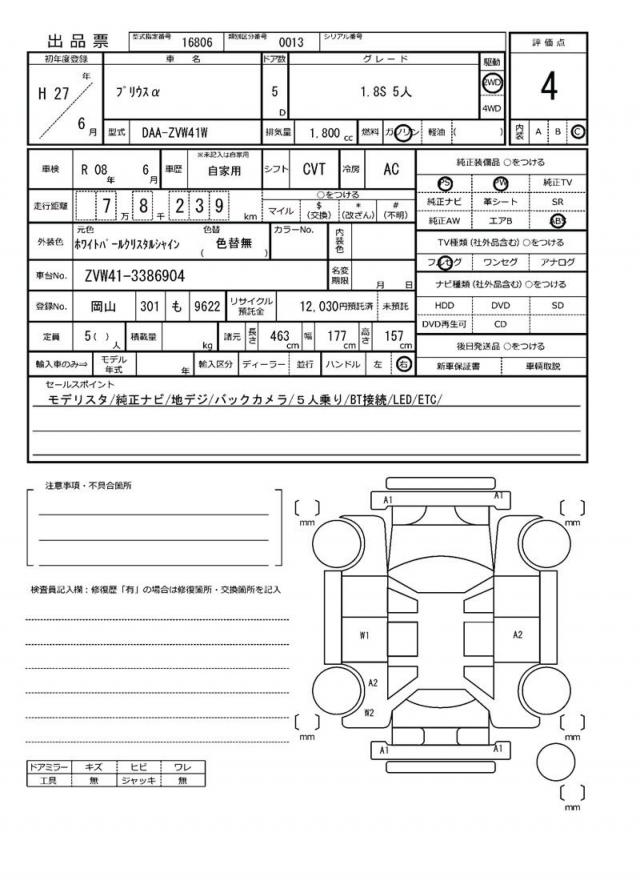 出品票 型式指定番号 16806 類別区分番号 0013 シリアル番号
評価点
初年度登録 車名 ドア数 グレード 駆動
H 27 年 6 月 プリウスα 5 D 1.8S 5人 2WD 4WD
4
型式 DAA-ZVW41W 排気量 1,800 cc 燃料 ガソリン 軽油 ( ) 内装 A B C
車検 R 08 年 6 月 車歴 ※未記入は自家用 自家用 シフト CVT 冷房 AC
純正装備品 ○をつける
PS PW 純正TV
純正ナビ 革シート SR
純正AW エアB ABS
走行距離 7 万 8 千 2 3 9 km
○をつける
マイル $ (交換) * (改ざん) # (不明)
外装色 元色 ホワイトパールクリスタルシャイン 色替 ( 色替無 ) カラーNo. 内装色
TV種類 (社外品含む) ○をつける
フルセグ ワンセグ アナログ
車台No. ZVW41-3386904 名変期限 月 日
ナビ種類 (社外品含む) ○をつける
HDD DVD SD
DVD再生可 CD
登録No. 岡山 301 も 9622 リサイクル預託金 12,030円預託済 未預託
定員 5 ( ) 人 積載量 kg 諸元 長さ 463 cm 幅 177 cm 高さ 157 cm
後日発送品 ○をつける
新車保証書 車輌取説
輸入車のみ⇒ モデル年式 年 輸入区分 ディーラー 並行 ハンドル 左 右
セールスポイント
モデリスタ/純正ナビ/地デジ/バックカメラ/５人乗り/BT接続/LED/ETC/
注意事項・不具合箇所
検査員記入欄：修復歴「有」の場合は修復箇所・交換箇所を記入
A1 A1
mm mm
W1 A2
A2
W2
mm mm
A1 A1
mm
ドアミラー キズ ヒビ ワレ
工具 無 ジャッキ 無